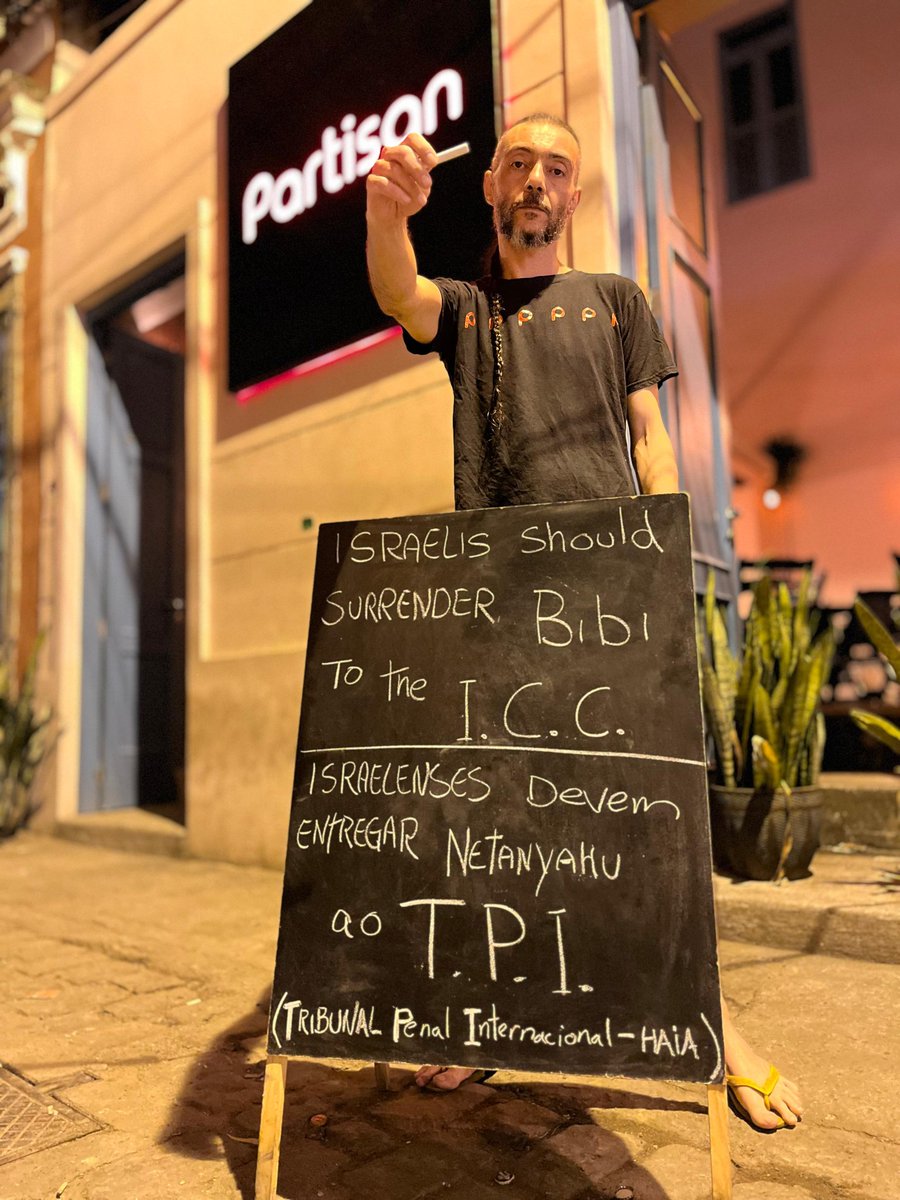 Partisan
P P P P P
ISRAELIS should
SURRENDER Bibi
To the I.C.C.
ISRAELENSES Devem
ENTREGAR NETANYAHU
ao T.P.I.
(TRIBUNAL Penal Internacional - HAIA)